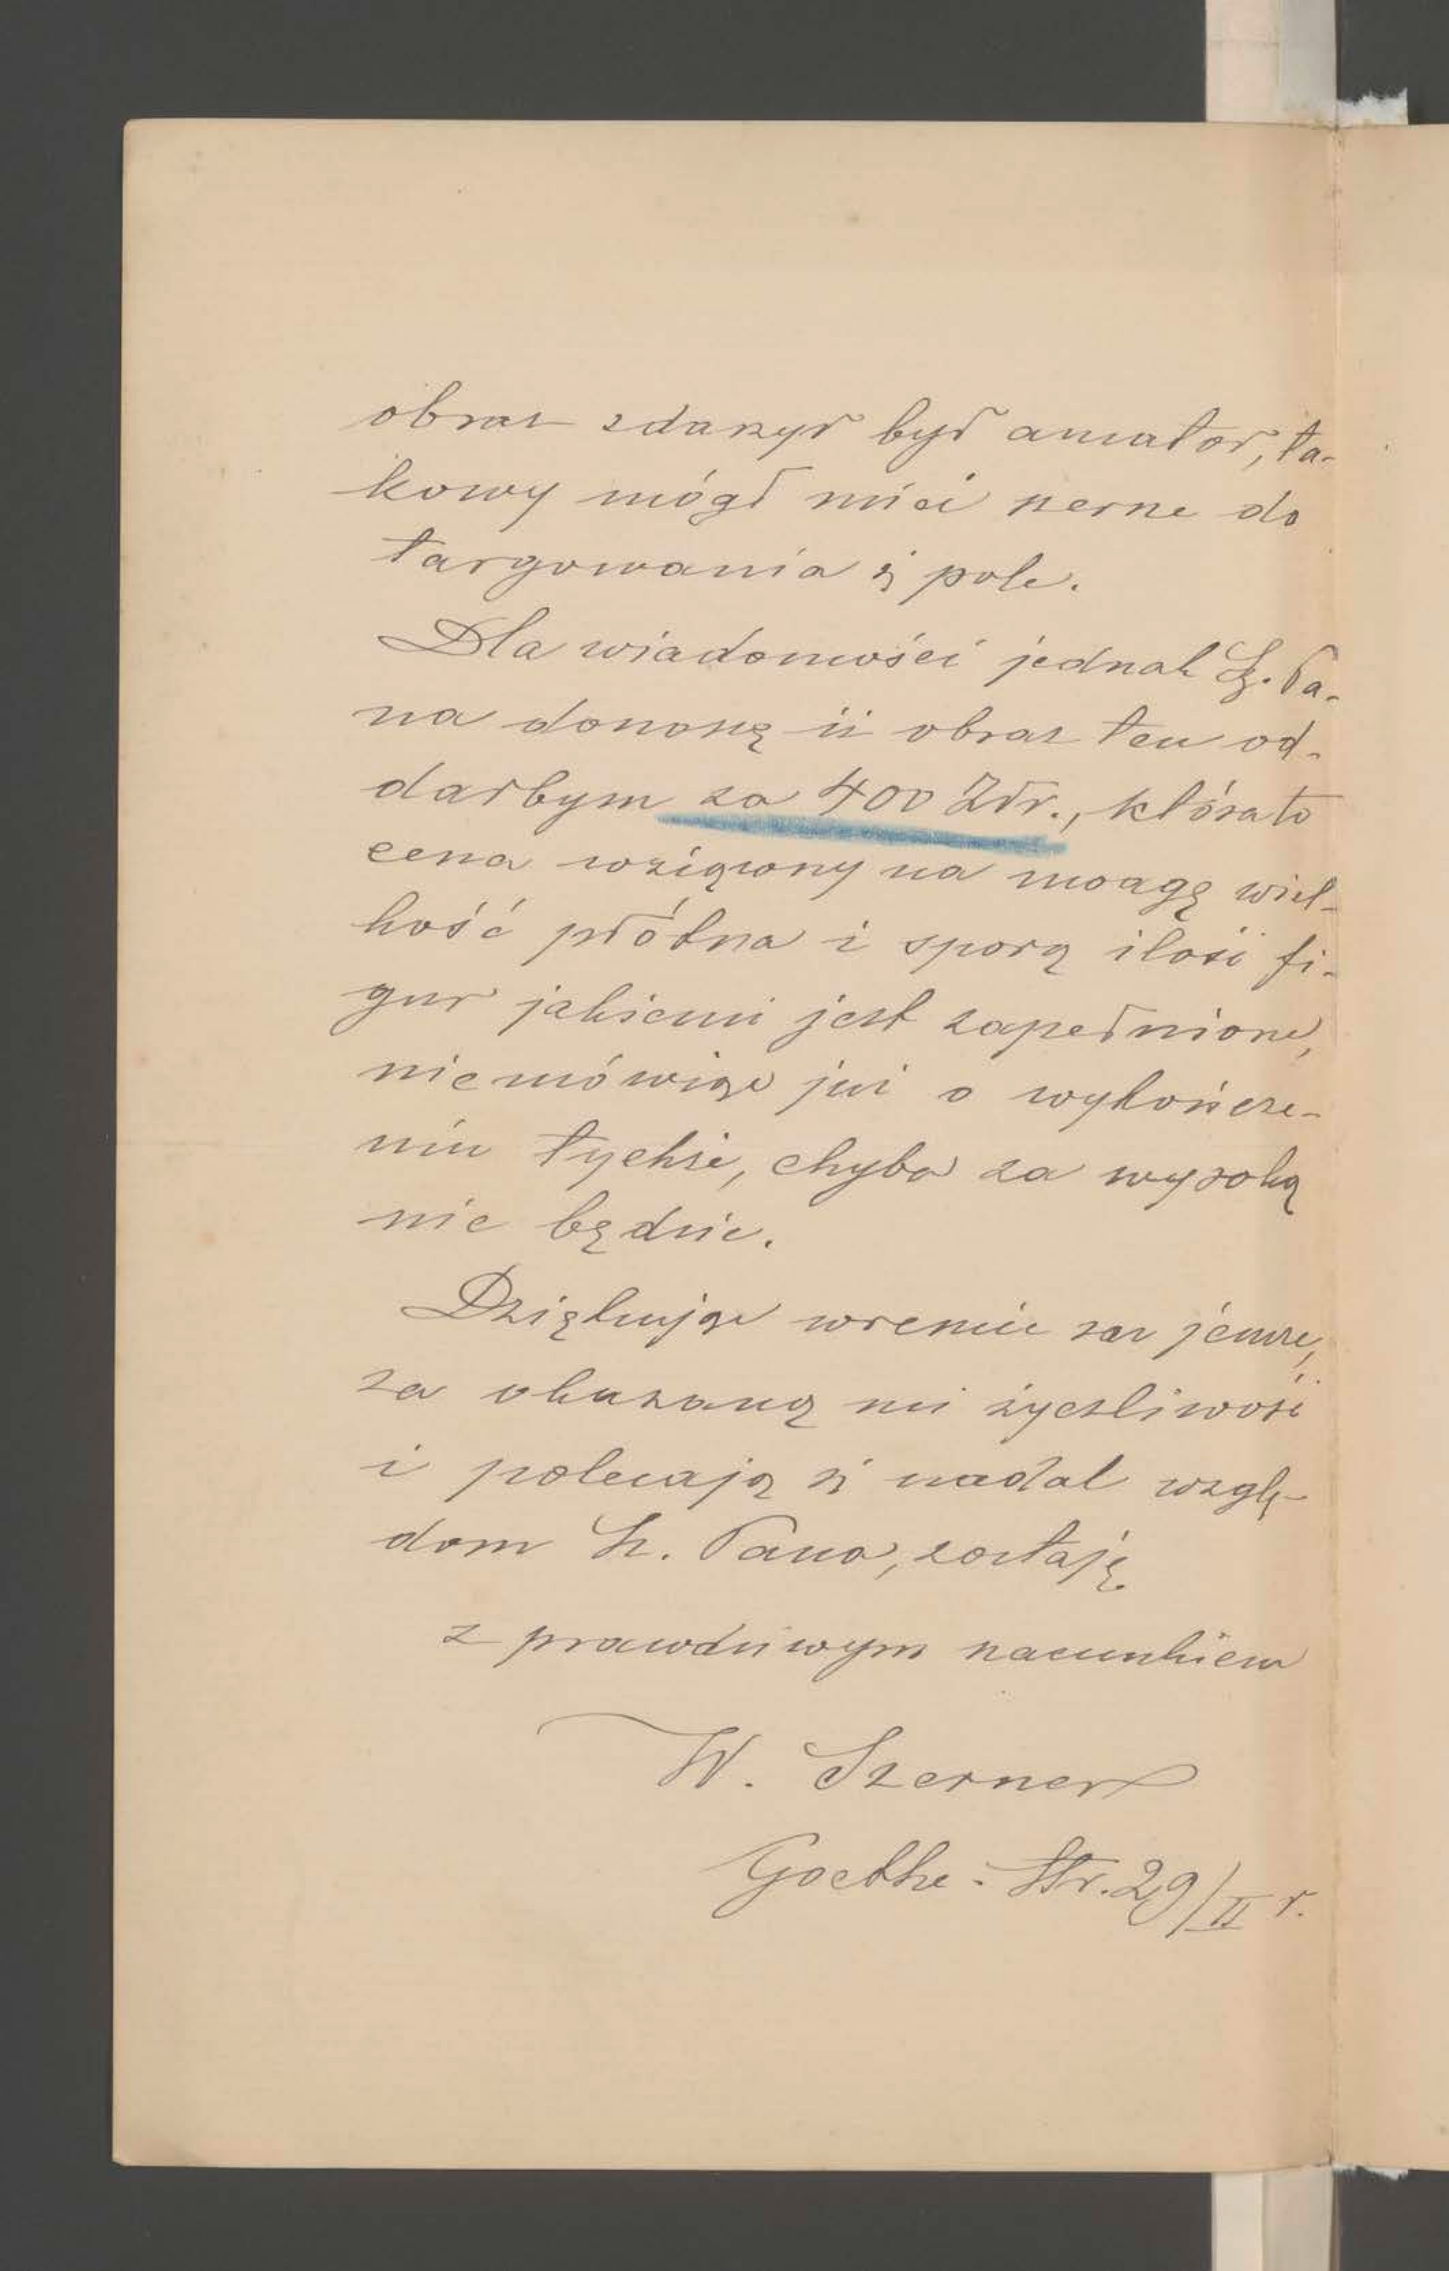 obraz zdarzył był amator, ta-
kowy mógł mieć szersze do
targowania się pole.
Dla wiadomości jednak Sz. Pa-
na donoszę iż obraz ten od-
dałbym za 400 Złr., którato
cena wziąwszy na uwagę wiel-
kość płótna i sporą ilość fi-
gur jakiemi jest zapełnione,
niemówiąc już o wykończe-
niu tychże, chyba za wysoką
nie będzie.
Dziękując wreszcie raz jeszcze,
za okazaną mi życzliwość
i polecając się nadal wzglę-
dom Sz. Pana, zostaję
z prawdziwym szacunkiem
W. Szerner
Goethe-Str. 29/II r.